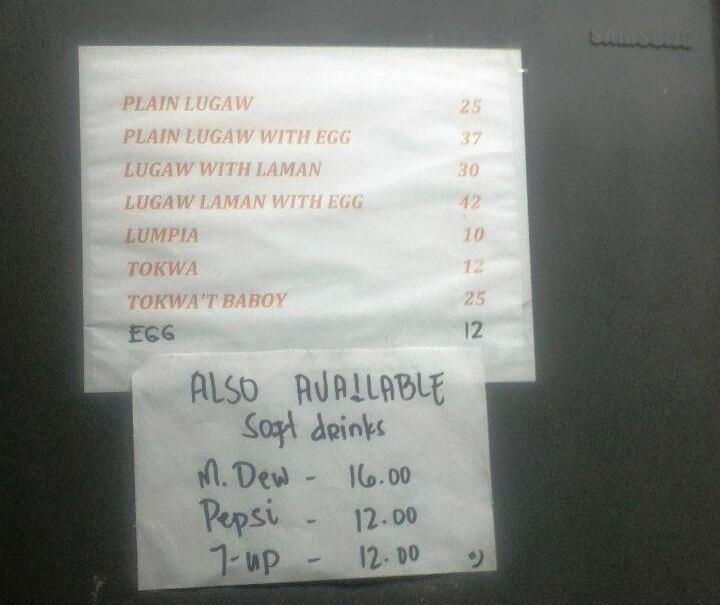 SAMSUNG
PLAIN LUGAW 25
PLAIN LUGAW WITH EGG 37
LUGAW WITH LAMAN 30
LUGAW LAMAN WITH EGG 42
LUMPIA 10
TOKWA 12
TOKWA'T BABOY 25
EGG 12
ALSO AVAILABLE
Soft drinks
M. Dew - 16.00
Pepsi - 12.00
7-up - 12.00 :)